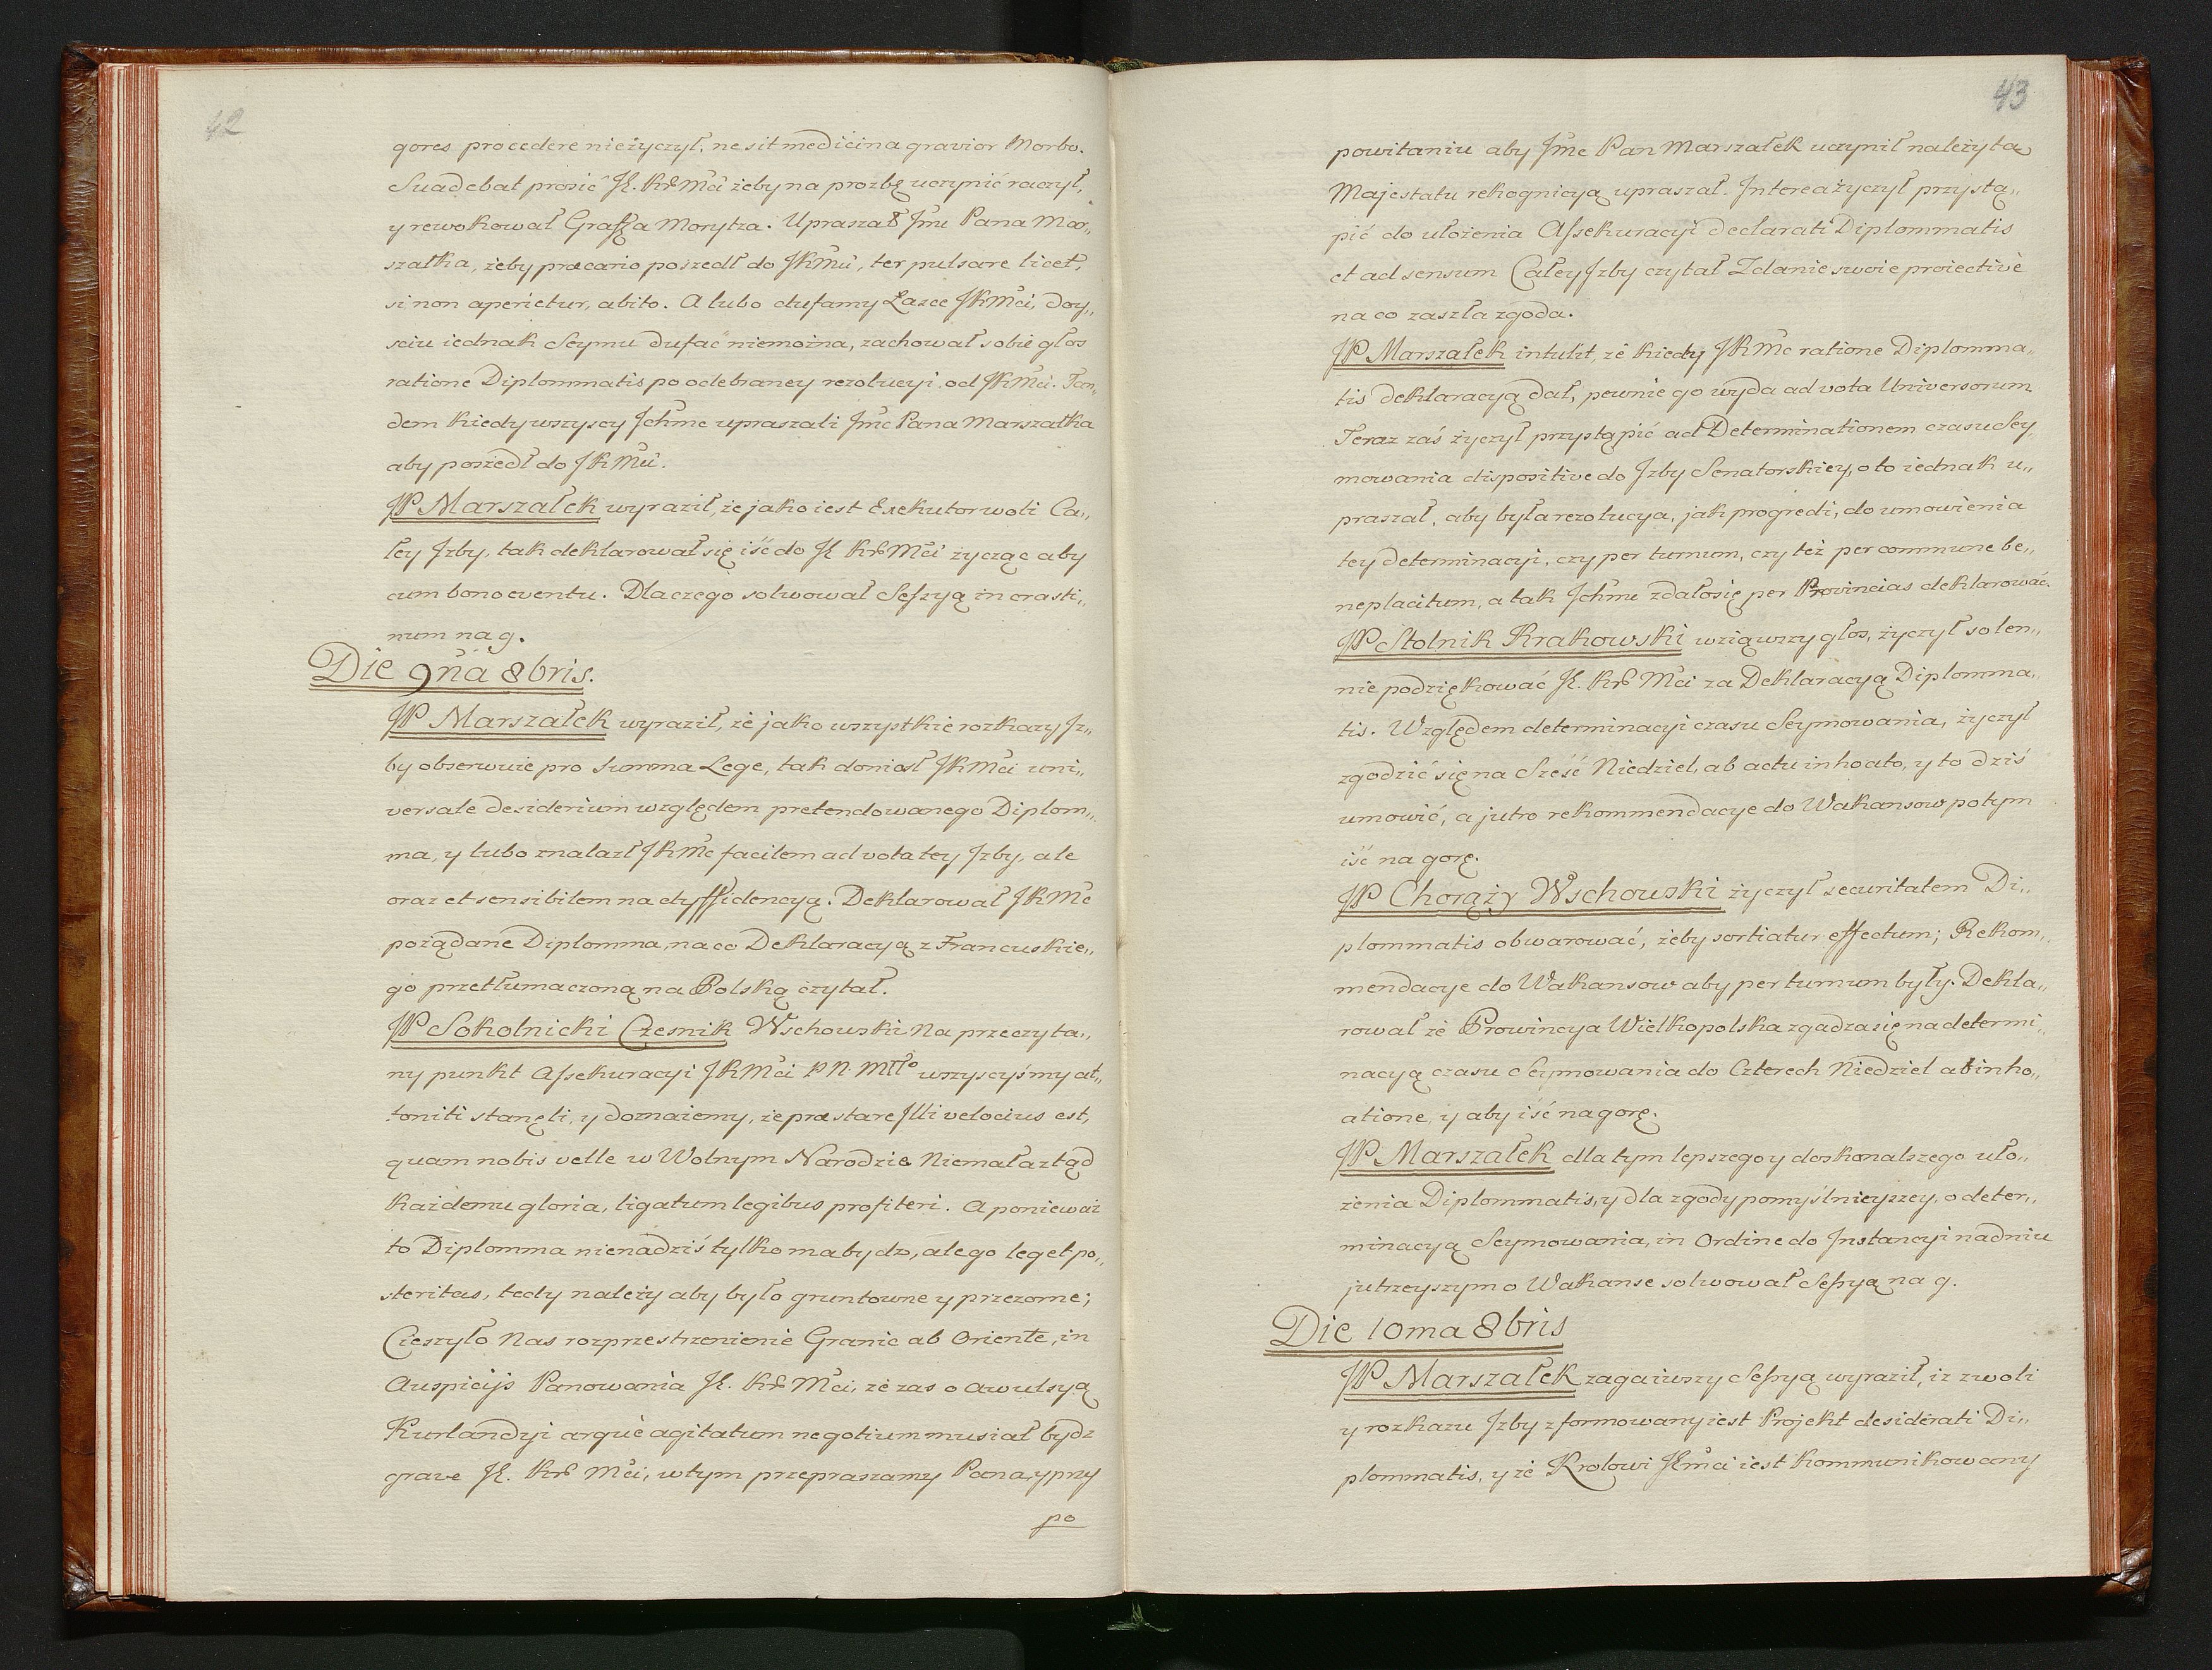 42
gores procedere nieżyczył, ne sit medicina gravior Morbo.
Suadebat prosić JK. Kr Mci żeby na prozbę uczynić raczył,
y rewokował Graffa Morytza. Upraszał Jmc Pana Mar„
szałka, żeby precario poszedł do JKMci, ter pulsare licet,
si non aperietur, abito. A lubo dufamy Łasce JKMci, doy„
sciu iednak Seymu dufać niemożna, zachował sobie głos
ratione Diplommatis po odebraney rezolucyi od JKMci. Tan„
dem kiedy wszyscy Jchmc upraszali Jmc Pana Marszałka
aby poszedł do JKMci.
JP Marszałek wyraził, że jako iest Exekutor woli Ca„
łey Jzby, tak deklarował się iść do JK Kr Mci życząc aby
cum bono eventu. Dlaczego solwował Sessyą in crasti„
num na 9.
Die 9na 8bris.
JP Marszałek wyraził, że jako wszystkie rozkazy Jz„
by obserwuie pro summa Lege, tak doniosł JKMci uni„
versale desiderium względem pretendowanego Diplom„
ma, y lubo znalazł JKMc facilem ad vota tey Jzby, ale
oraz et sensibilem na dyffidencyą. Deklarował JKMc
pożądane Diplomma, na co Deklaracyą z Francuskie„
go przetłumaczoną na Polską czytał.
JP Sokolnicki Czesnik Wschowski Na przeczyta„
ny punkt Assekuracyi JKMci PN Młło wszyscyśmy at„
toniti stanęli, y doznaiemy, że præstare Jlli velocius est,
quam nobis velle w Wolnym Narodzie Niemała ztąd
każdemu gloria, ligatum legibus profiteri. A ponieważ
to Diplomma nie na dziś tylko ma bydz, ale go leget po„
steritas, tedy należy aby było gruntowne y przezorne;
Cieszyło Nas rozprzestrzenienie Granic ab Oriente, in
Auspicijs Panowania JK. Kr Mci, że zas o awulsyą
Kurlandyi argue agitatum negotium musiał bydz
grave JK. Kr Mci, w tym przepraszamy Pana, y przy
po
43
powitaniu aby Jmc Pan Marszałek uczynił należytą
Majestatu rekognicyą upraszał. Jnterea życzył przystą„
pić do ułożenia Assekuracyi declarati Diplommatis
et ad sensum Całey Jzby czytał Zdanie swoie proiective
na co zaszła zgoda.
JP Marszałek intulit, że kiedy JKMc ratione Diplomma„
tis deklaracyą dał, pewnie go wyda ad vota Universorum
Teraz zaś życzył przystąpić ad Determinationem czasu Sey„
mowania dispositive do Jzby Senatorskiey, o to iednak u„
praszał, aby była rezolucya, jak progredi, do umowienia
tey determinacyi, czy per turnum, czy też per commune be„
neplacitum, a tak Jchmc zdało się per Provincias deklarować.
JP Stolnik Krakowski wziąwszy głos, życzył solen„
nie podziękować JK. Kr Mci za Deklaracyą Diplomma„
tis. Względem determinacyi czasu Seymowania, życzył
zgodzić się na Sześć Niedziel, ab actu inhoato, y to dziś
umowić, a jutro rekommendacye do Wakansow potym
iść na gorę.
JP Chorąży Wschowski życzył securitatem Di„
plommatis obwarować, żeby sortiatur effectum; Rekom„
mendacye do Wakansow aby per turnum były. Dekla„
rował że Prowincya Wielkopolska zgadza się na determi„
nacyą czasu Seymowania do Czterech Niedziel ab inho„
atione, y aby iść na gorę.
JP Marszałek dla tym lepszego y doskonalszego uło„
żenia Diplommatis, y dla zgody pomyślnieyszey, o deter„
minacyą Seymowania, in Ordine do Jnstancyi na dniu
jutrzeyszym o Wakanse solwował Sessyą na 9.
Die 10ma 8bris
JP Marszałek zagaiwszy Sessyą wyraził, iz z woli
y rozkazu Jzby zformowany iest Projekt desiderati Di„
plommatis, y że Krolowi JKmci iest kommunikowany